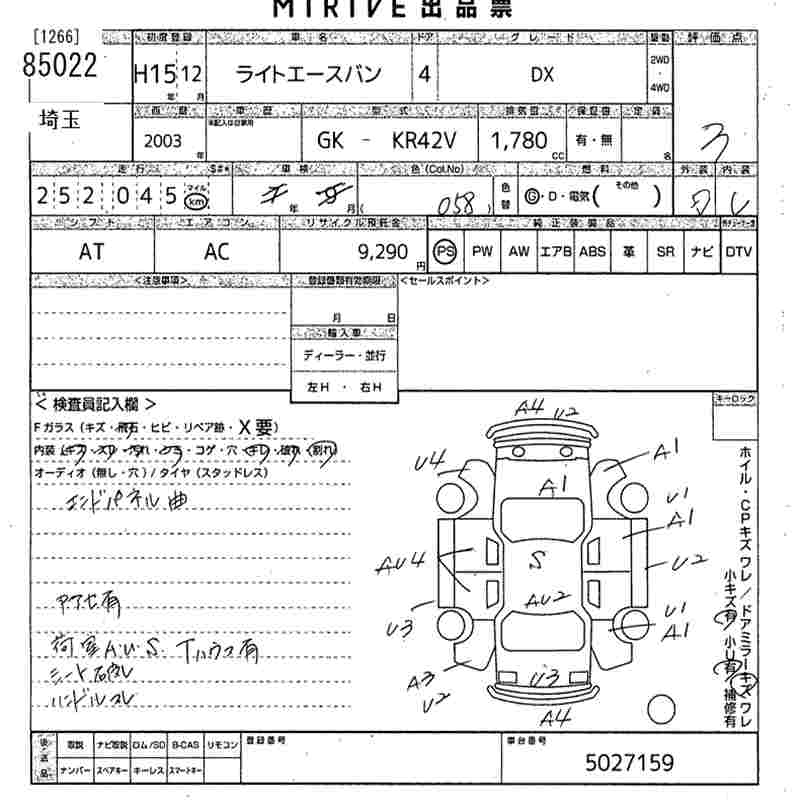 MIRIVE 出品票
[1266] 初度登録 車名 ドア グレード 駆動 評価点
85022 H15 12 ライトエースバン 4 DX 2WD・4WD
年 月
埼玉 西暦 車歴 型式 排気量 保証書 定員 3
※記入は自家用
2003 年 GK - KR42V 1,780 cc 有・無 名
走行 S#★ 車検 色(Col.No) 燃料 外装 内装
252,045 マイル km 年 月 058 色替 G・D・電気( その他 ) D
シフト エアコン リサイクル預託金 純正装備品
AT AC 9,290 円 PS PW AW エアB ABS 革 SR ナビ DTV
<注意事項> 登録書類有効期限 <セールスポイント>
月 日
輸入車
ディーラー・並行
左H ・ 右H
<検査員記入欄> キーロック
Fガラス(キズ・飛石・ヒビ・リペア跡・X要)
内装(キズ・スレ・汚れ・シミ・コゲ・穴・キレ・破れ・割れ)
オーディオ(無し・穴)/タイヤ(スタッドレス)
エンドパネル曲
ヤブレ有
荷室A.U.S. Tハウス有
シート破レ
ハンドルスレ
A4 U2
U4 A1 A1
U1 A1
AU4 S U2
AU2
U3 U1 A1
A3 U2 U3
A4
ホイル・CPキズワレ/ドアミラーキズワレ
小キズ有 小U有 補修有
後送品 取説 ナビ取説 ロム/SD B-CAS リモコン 登録番号 車台番号
ナンバー スペアキー キーレス スマートキー 5027159